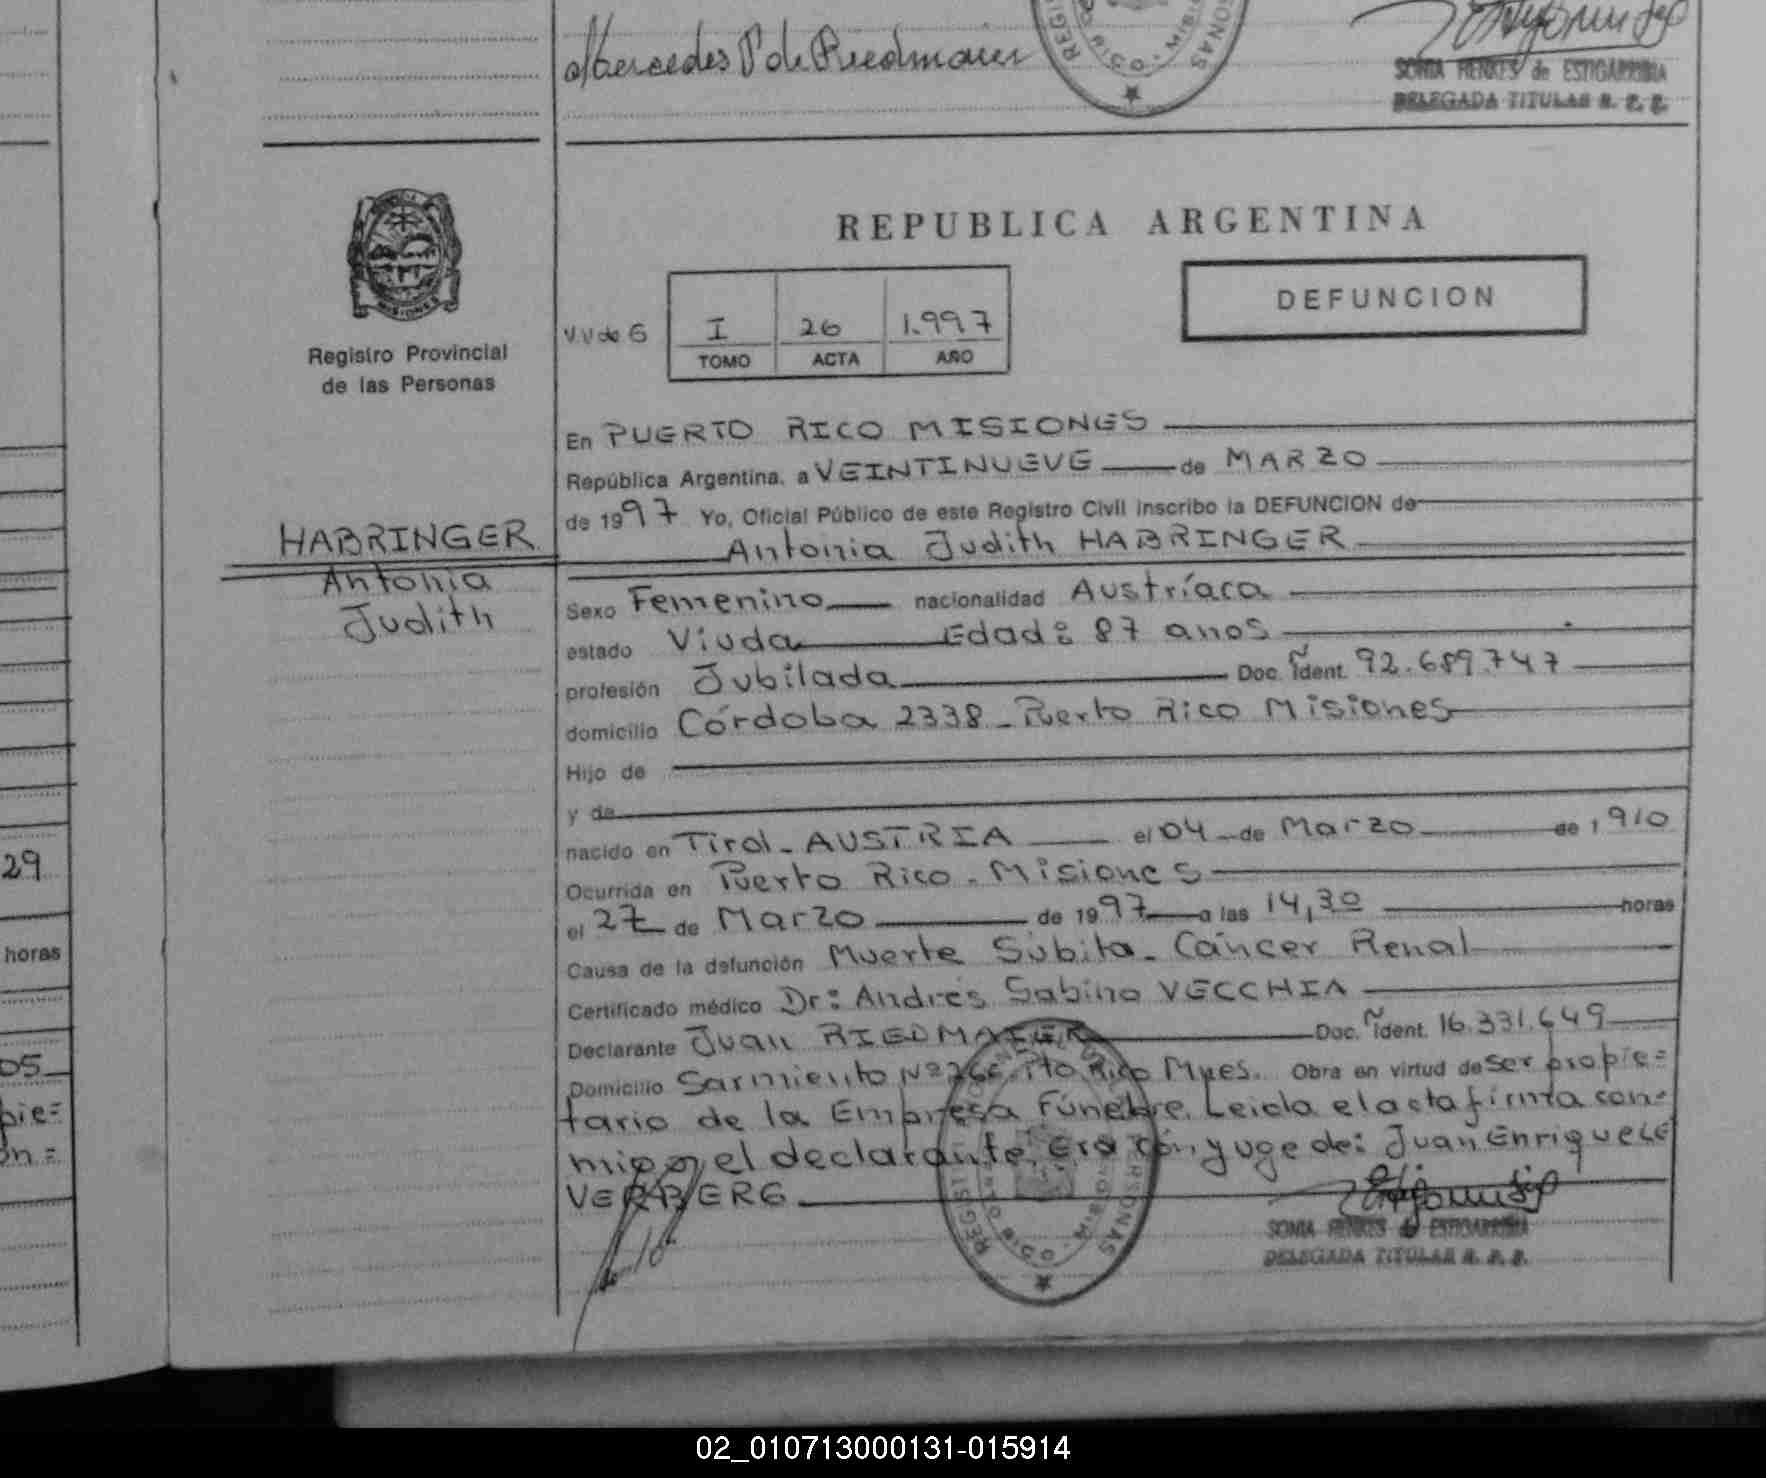 Mercedes P de Riedmaier
SONIA HENKES de ESTIGARRIBIA
DELEGADA TITULAR R. P. P.
REPUBLICA ARGENTINA
DEFUNCION
V.V de G
I 26 1.997
TOMO ACTA AÑO
MISIONES
Registro Provincial
de las Personas
En PUERTO RICO MISIONES
República Argentina, a VEINTINUEVE de MARZO
de 1997 Yo, Oficial Público de este Registro Civil inscribo la DEFUNCION de
HABRINGER
Antonia
Judith
Antonia Judith HABRINGER
Sexo Femenino nacionalidad Austríaca
estado Viuda Edad: 87 anos
profesión Jubilada Doc. Ident. 92.689.747
domicilio Córdoba 2338 - Puerto Rico Misiones
Hijo de
y de
nacido en Tirol - AUSTRIA el 04 de Marzo de 1910
Ocurrida en Puerto Rico - Misiones
el 27 de Marzo de 1997 a las 14,30 horas
Causa de la defunción Muerte Súbita - Cáncer Renal
Certificado médico Dr: Andrés Sabino VECCHIA
Declarante Juan RIEDMAIER Doc. Ident. 16.331.649
Domicilio Sarmiento Nº Pto. Rico Mnes. Obra en virtud de ser propie=
tario de la Empresa Fúnebre. Leida el acta firma con=
migo el declarante. Era cónyuge de: Juan Enrique LE
VERBERG
SONIA HENKES de ESTIGARRIBIA
DELEGADA TITULAR R. P. P.
29
horas
05
pie=
on=
02_010713000131-015914